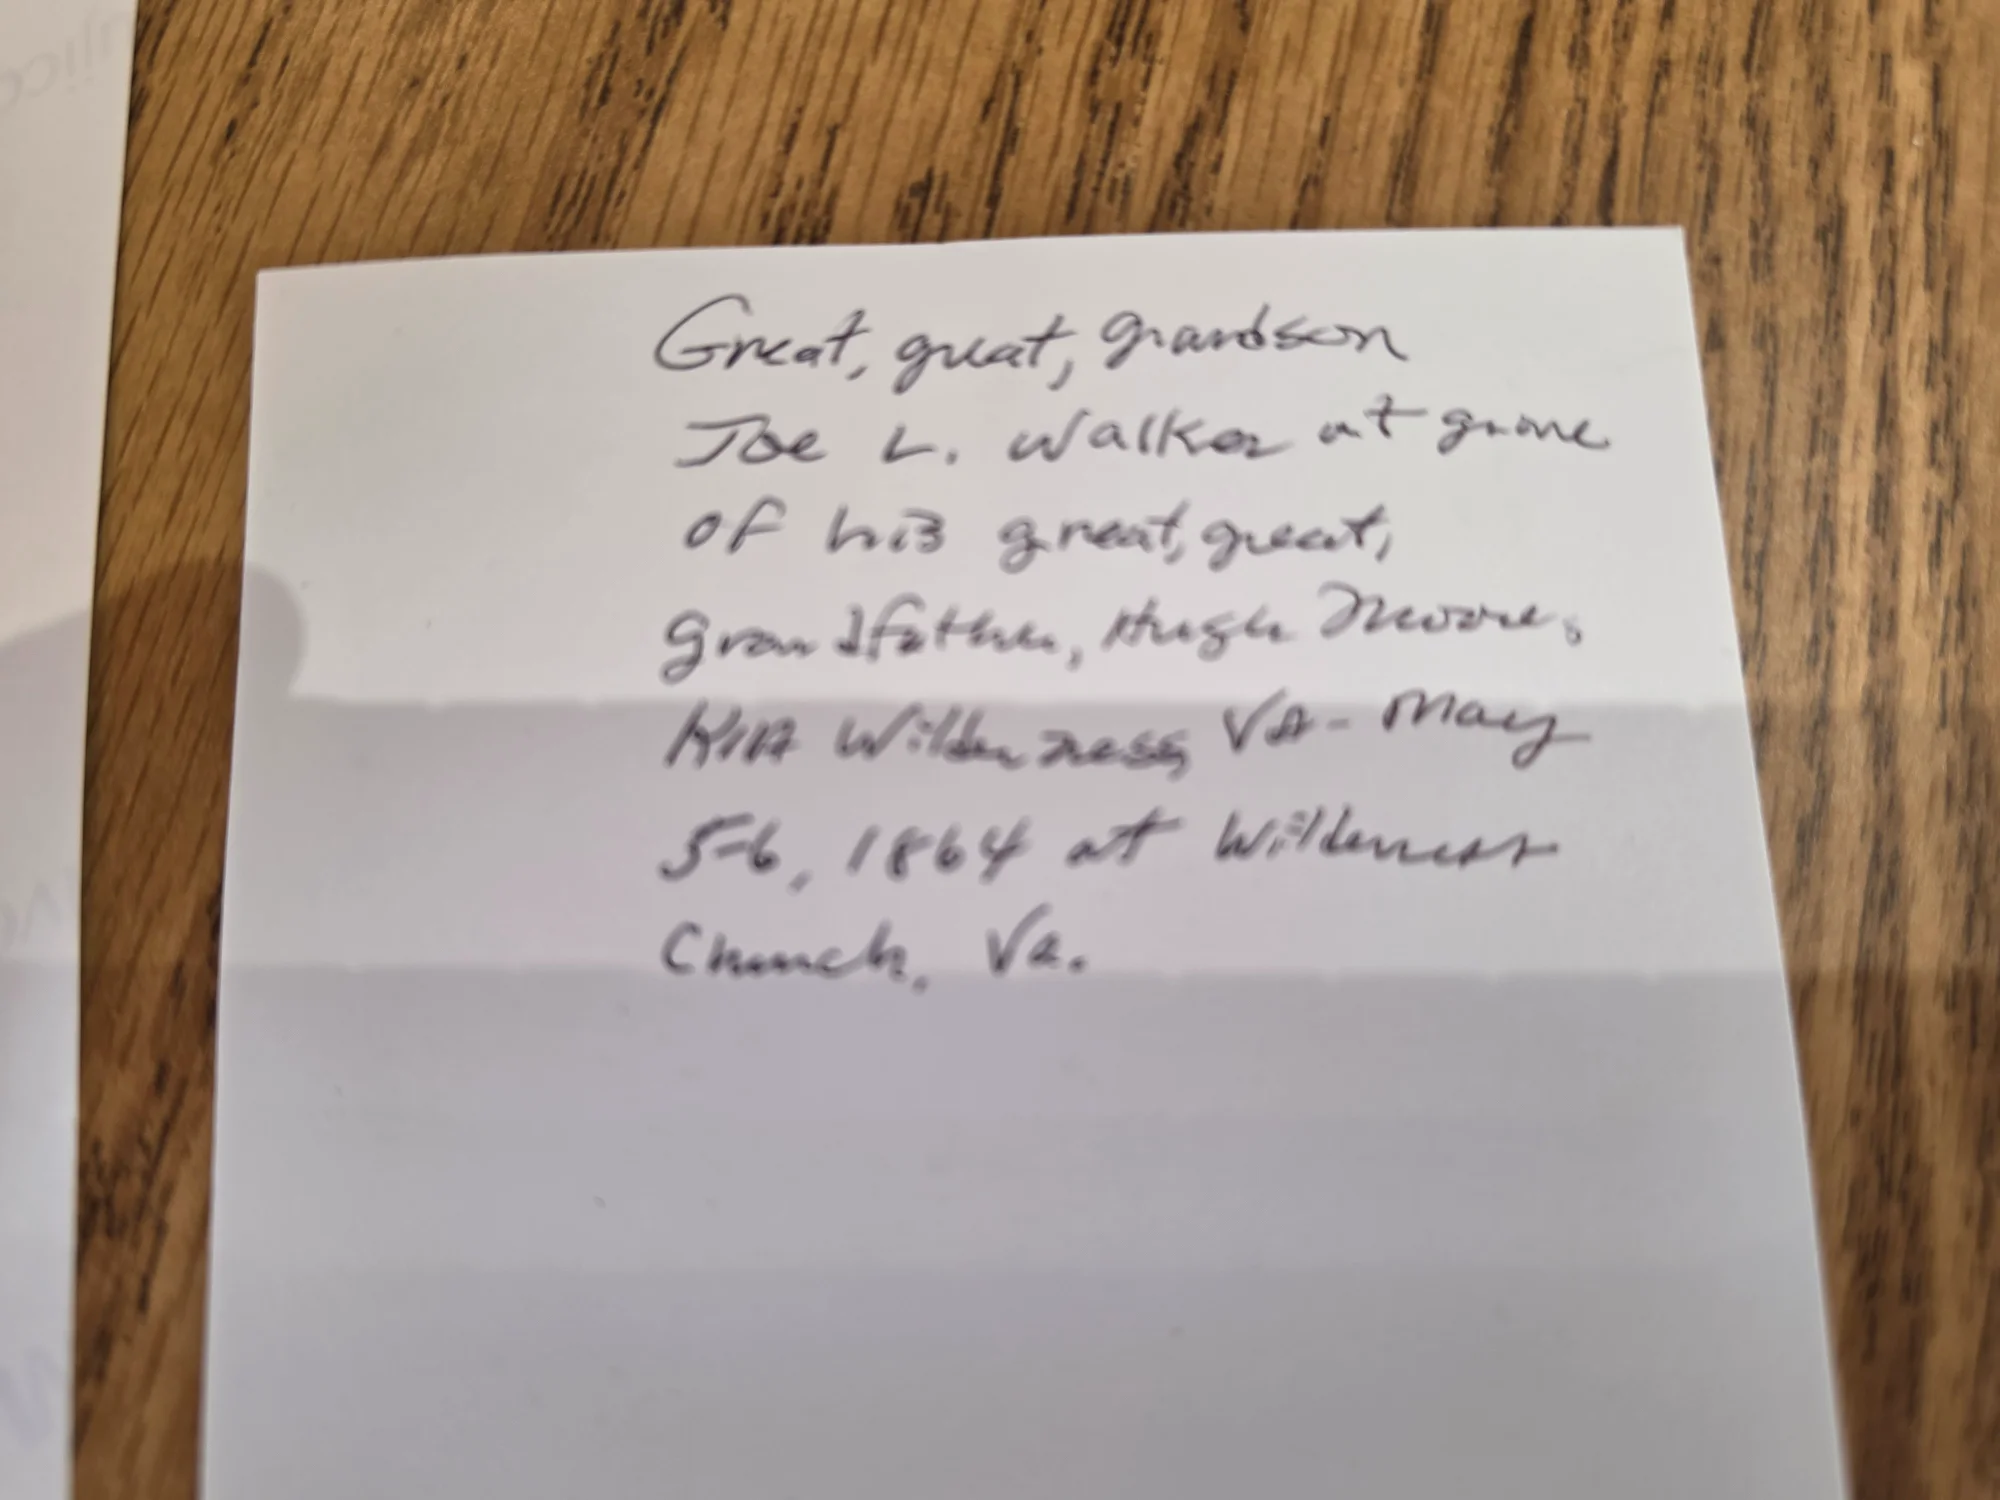 Great, great, grandson
Joe L. Walker at grave
of his great, great,
grandfather, Hugh Moore,
KIA Wilderness, VA - May
5-6, 1864 at Wilderness
Church, Va.